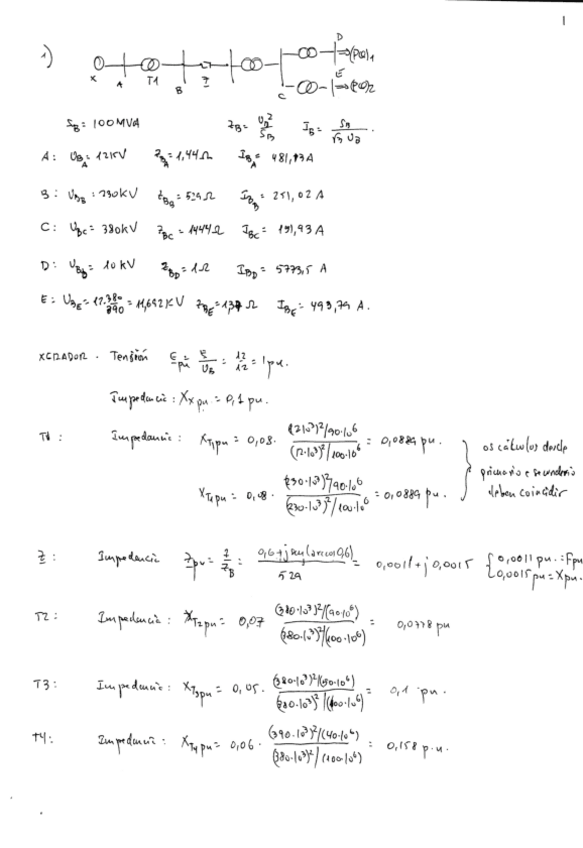 1
1)
D
(P,Q)1
E
(P,Q)2
X A T1 B Z C
SB = 100 MVA ZB = UB²/SB IB = SB/(√3 UB).
A: UBA = 12KV ZBA = 1,44 Ω IBA = 481,13A
B: UBB = 230KV ZBB = 529 Ω IBB = 251,02 A
C: UBC = 380KV ZBC = 1444Ω IBC = 151,93A
D: UBD = 10 KV ZBD = 1Ω IBD = 5773,5 A
E: UBE = 380/390 = 11,692 KV ZBE = Ω IBE = 493,79 A.
XERADOR. Tensión Epu = E/UB = 12/12 = 1 pu.
Impedancia: XX pu = 0,1 pu.
T1: Impedancia: XT1pu = 0,08 · ((12·10³)²/90·10⁶)/((12·10³)²/100·10⁶) = 0,0889 pu.
os cálculos desde
primario e secundario
deben coincidir
XT1pu = 0,08 · ((230·10³)²/90·10⁶)/((230·10³)²/100·10⁶) = 0,0889 pu.
Z: Impedancia Zpu = Z/ZB = (0,6+j sen(arcos 0,6))/529 = 0,0011 + j 0,0015 { 0,0011 pu. = rpu
0,0015 pu = Xpu.
T2: Impedancia: XT2pu = 0,07 ((380·10³)²/(90·10⁶))/((380·10³)²/(100·10⁶)) = 0,0778 pu
T3: Impedancia: XT3pu = 0,05 · ((380·10³)²/(50·10⁶))/((380·10³)²/(100·10⁶)) = 0,1 pu.
T4: Impedancia: XT4pu = 0,06 · ((390·10³)²/(40·10⁶))/((380·10³)²/(100·10⁶)) = 0,158 p.u.